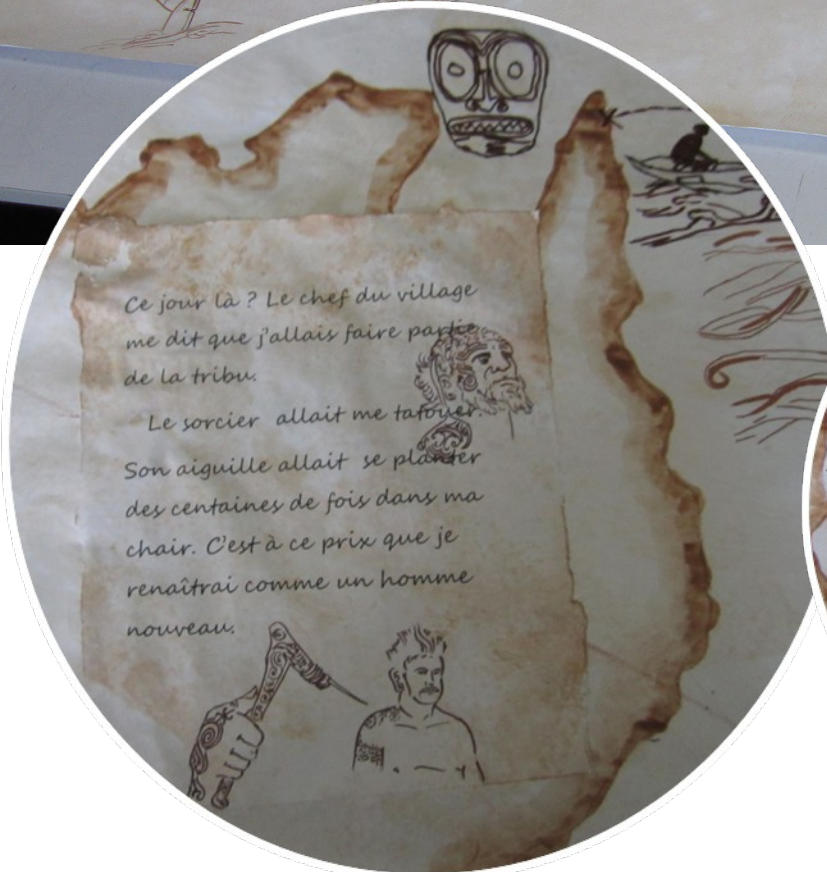 Ce jour là ? Le chef du village
me dit que j'allais faire partie
de la tribu.
Le sorcier allait me tatouer.
Son aiguille allait se planter
des centaines de fois dans ma
chair. C'est à ce prix que je
renaîtrai comme un homme
nouveau.